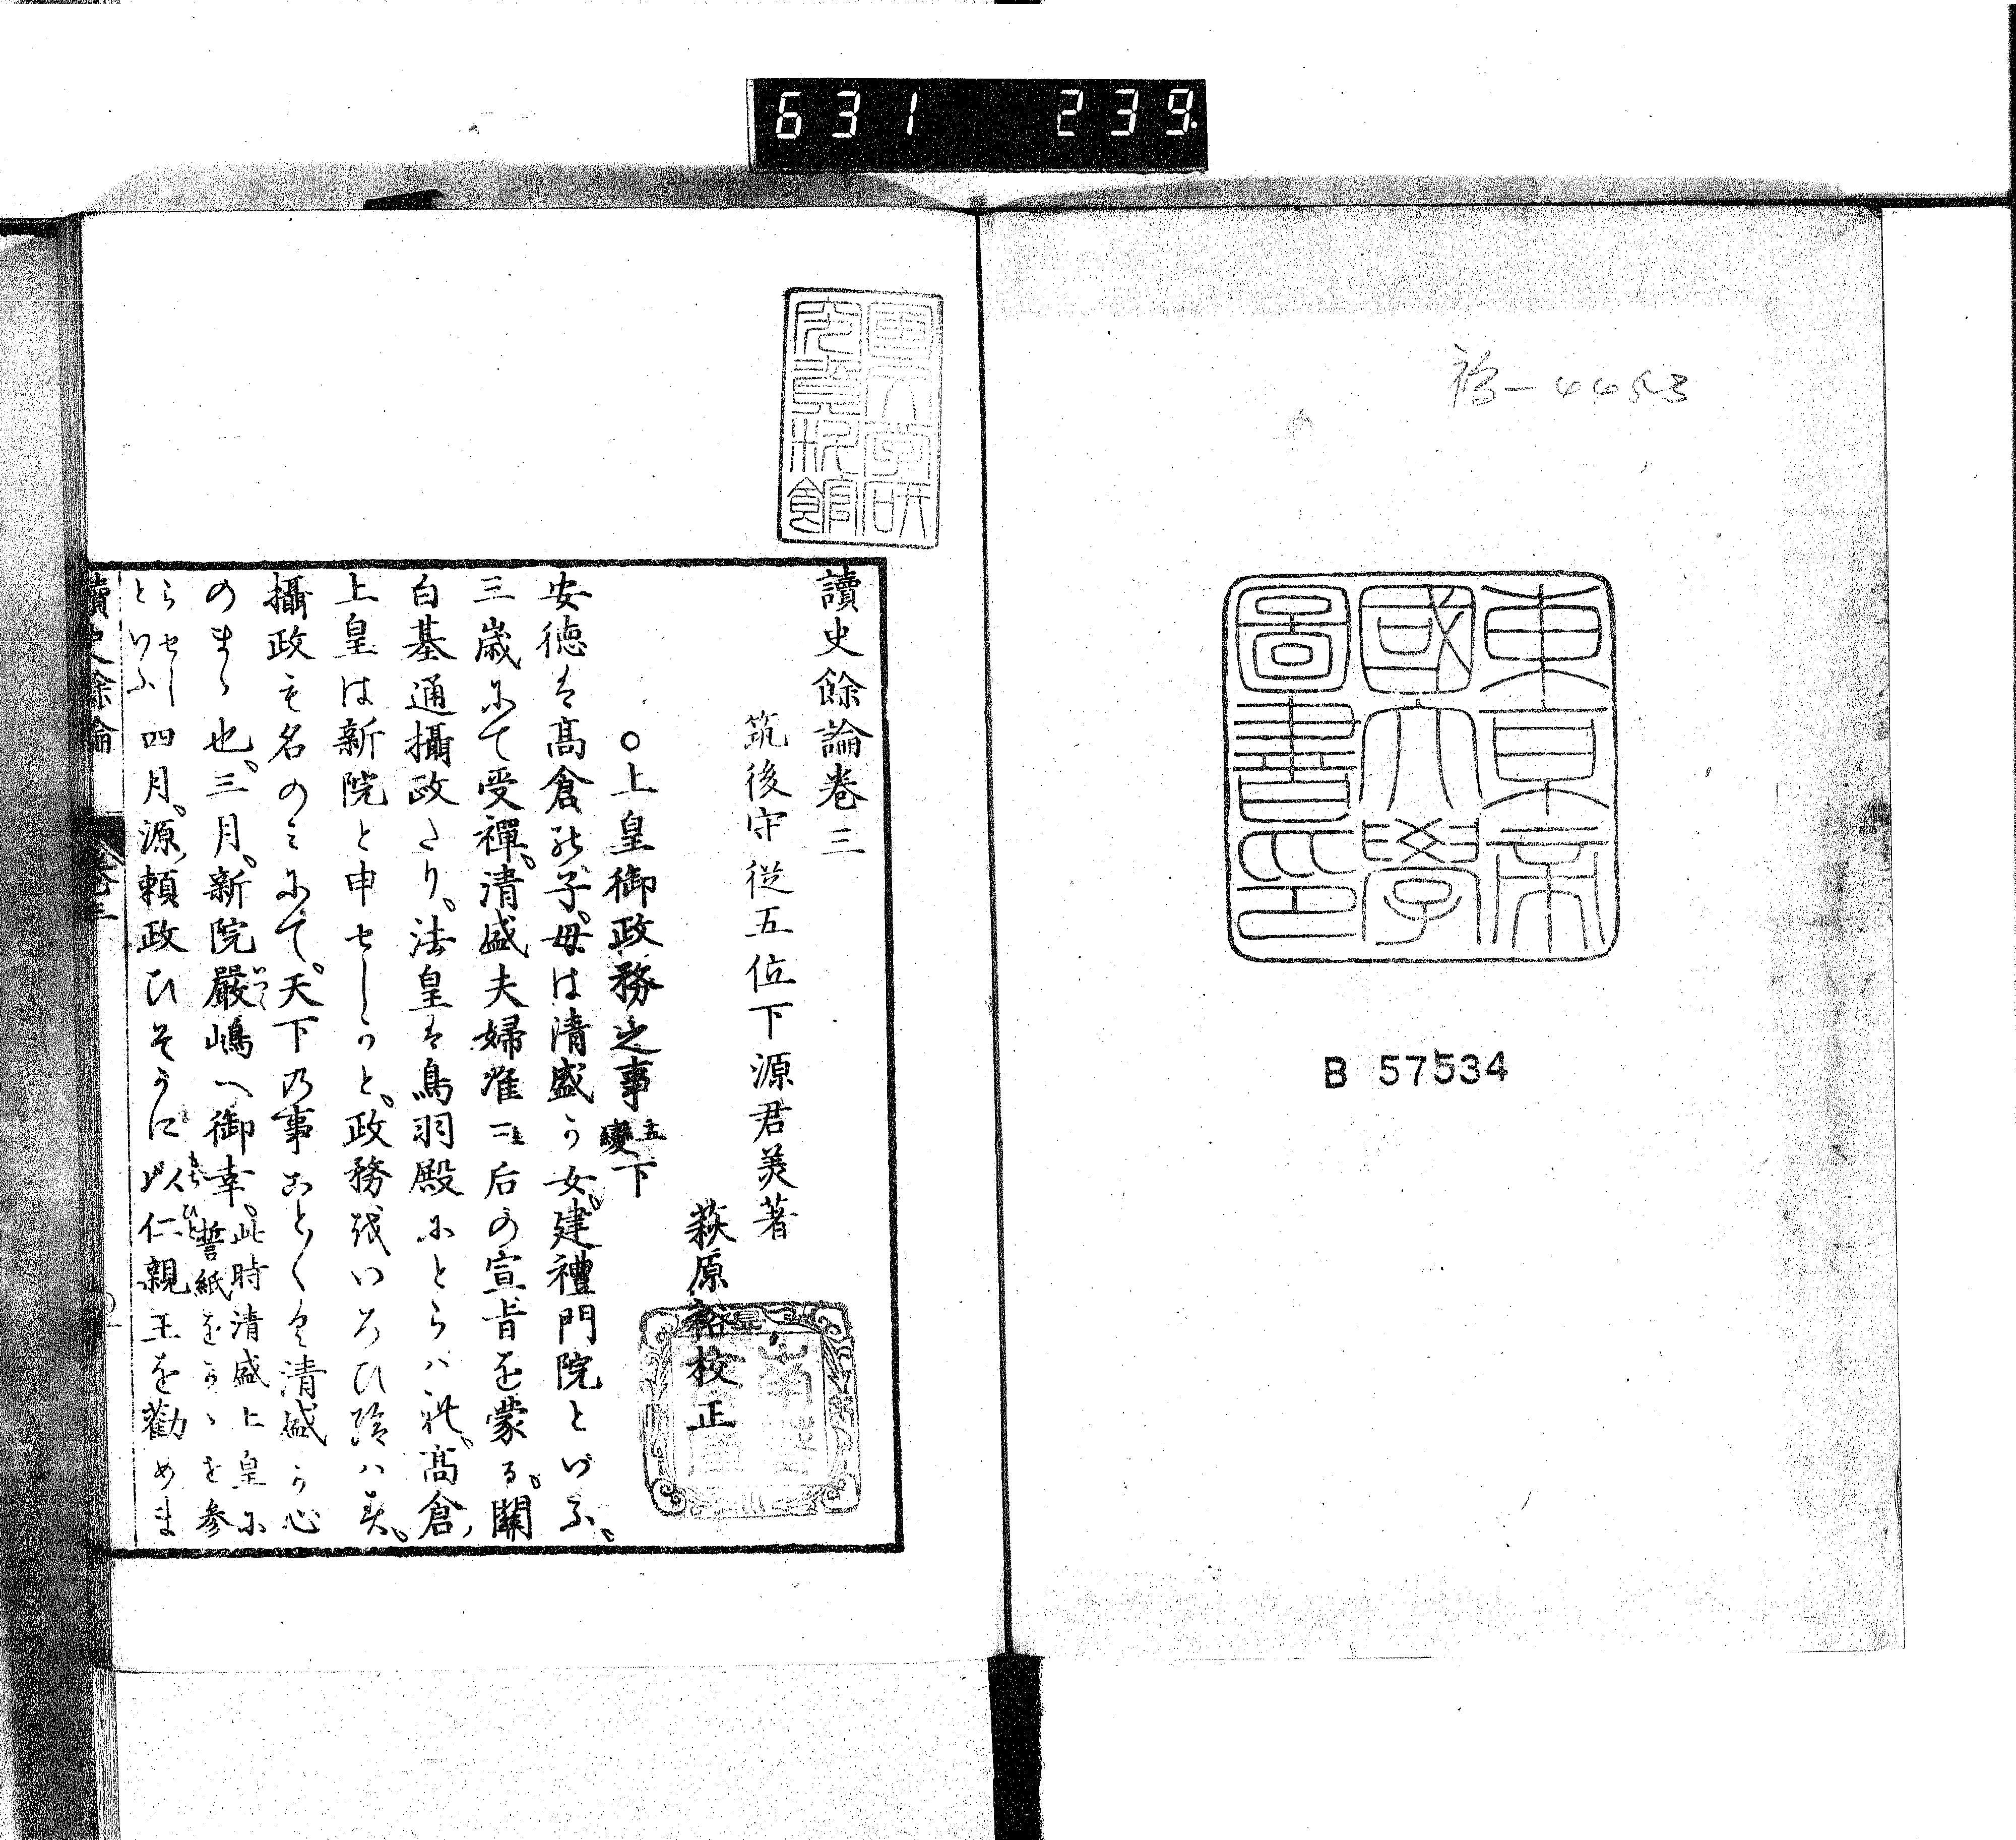 631 239
福-4453
東京帝
國大學
圖書印
B 57534
讀史餘論巻三
筑後守從五位下源君美著
萩原裕校正
○上皇御政務之事五變下
安徳は髙倉の子。母は清盛か女。建禮門院といふ。
三歳にて受禪。清盛夫婦准三后の宣旨を蒙る。關
白基通攝政たり。法皇は鳥羽殿にとらハれ。髙倉
上皇は新院と申せしかと。政務をいろひ給ハす。
攝政も名のみにて。天下の事ことく清盛か心
のまゝ也。三月。新院嚴嶋へ御幸。此時清盛上皇に
誓紙をかゝを参
らせし
といふ四月。源頼政ひそかに以仁親王を勸めま
讀史餘論 巻三